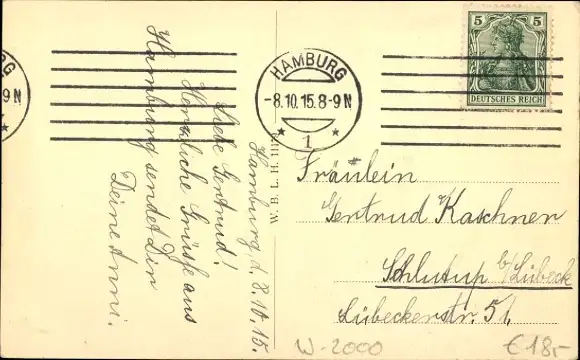 Hamburg, d. 8.10.15.
Liebe Gertrud!
Herzliche Grüsse aus
Hamburg sendet Dir
Deine Anni.
W. B. L. H.
HAMBURG
-8.10.15.8-9N
1
5 5
DEUTSCHES REICH
Fräulein
Gertrud Kaschner
Schlutup b/Lübeck
Lübeckerstr. 51.
W-2000
€18,-